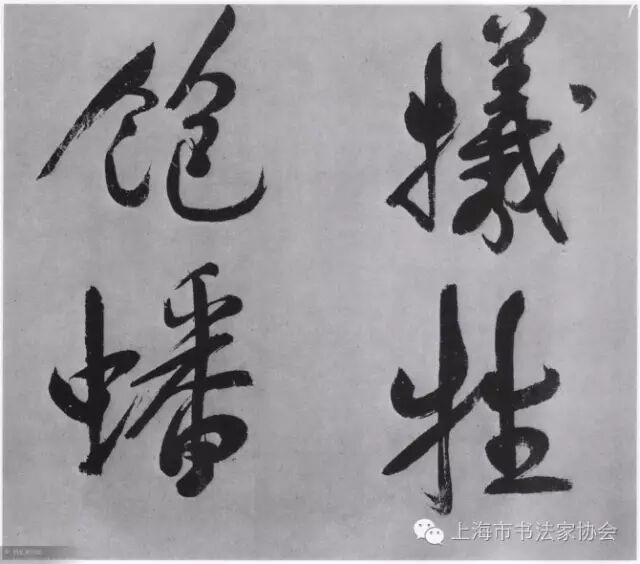 犧牲
飽蟠
上海市书法家协会